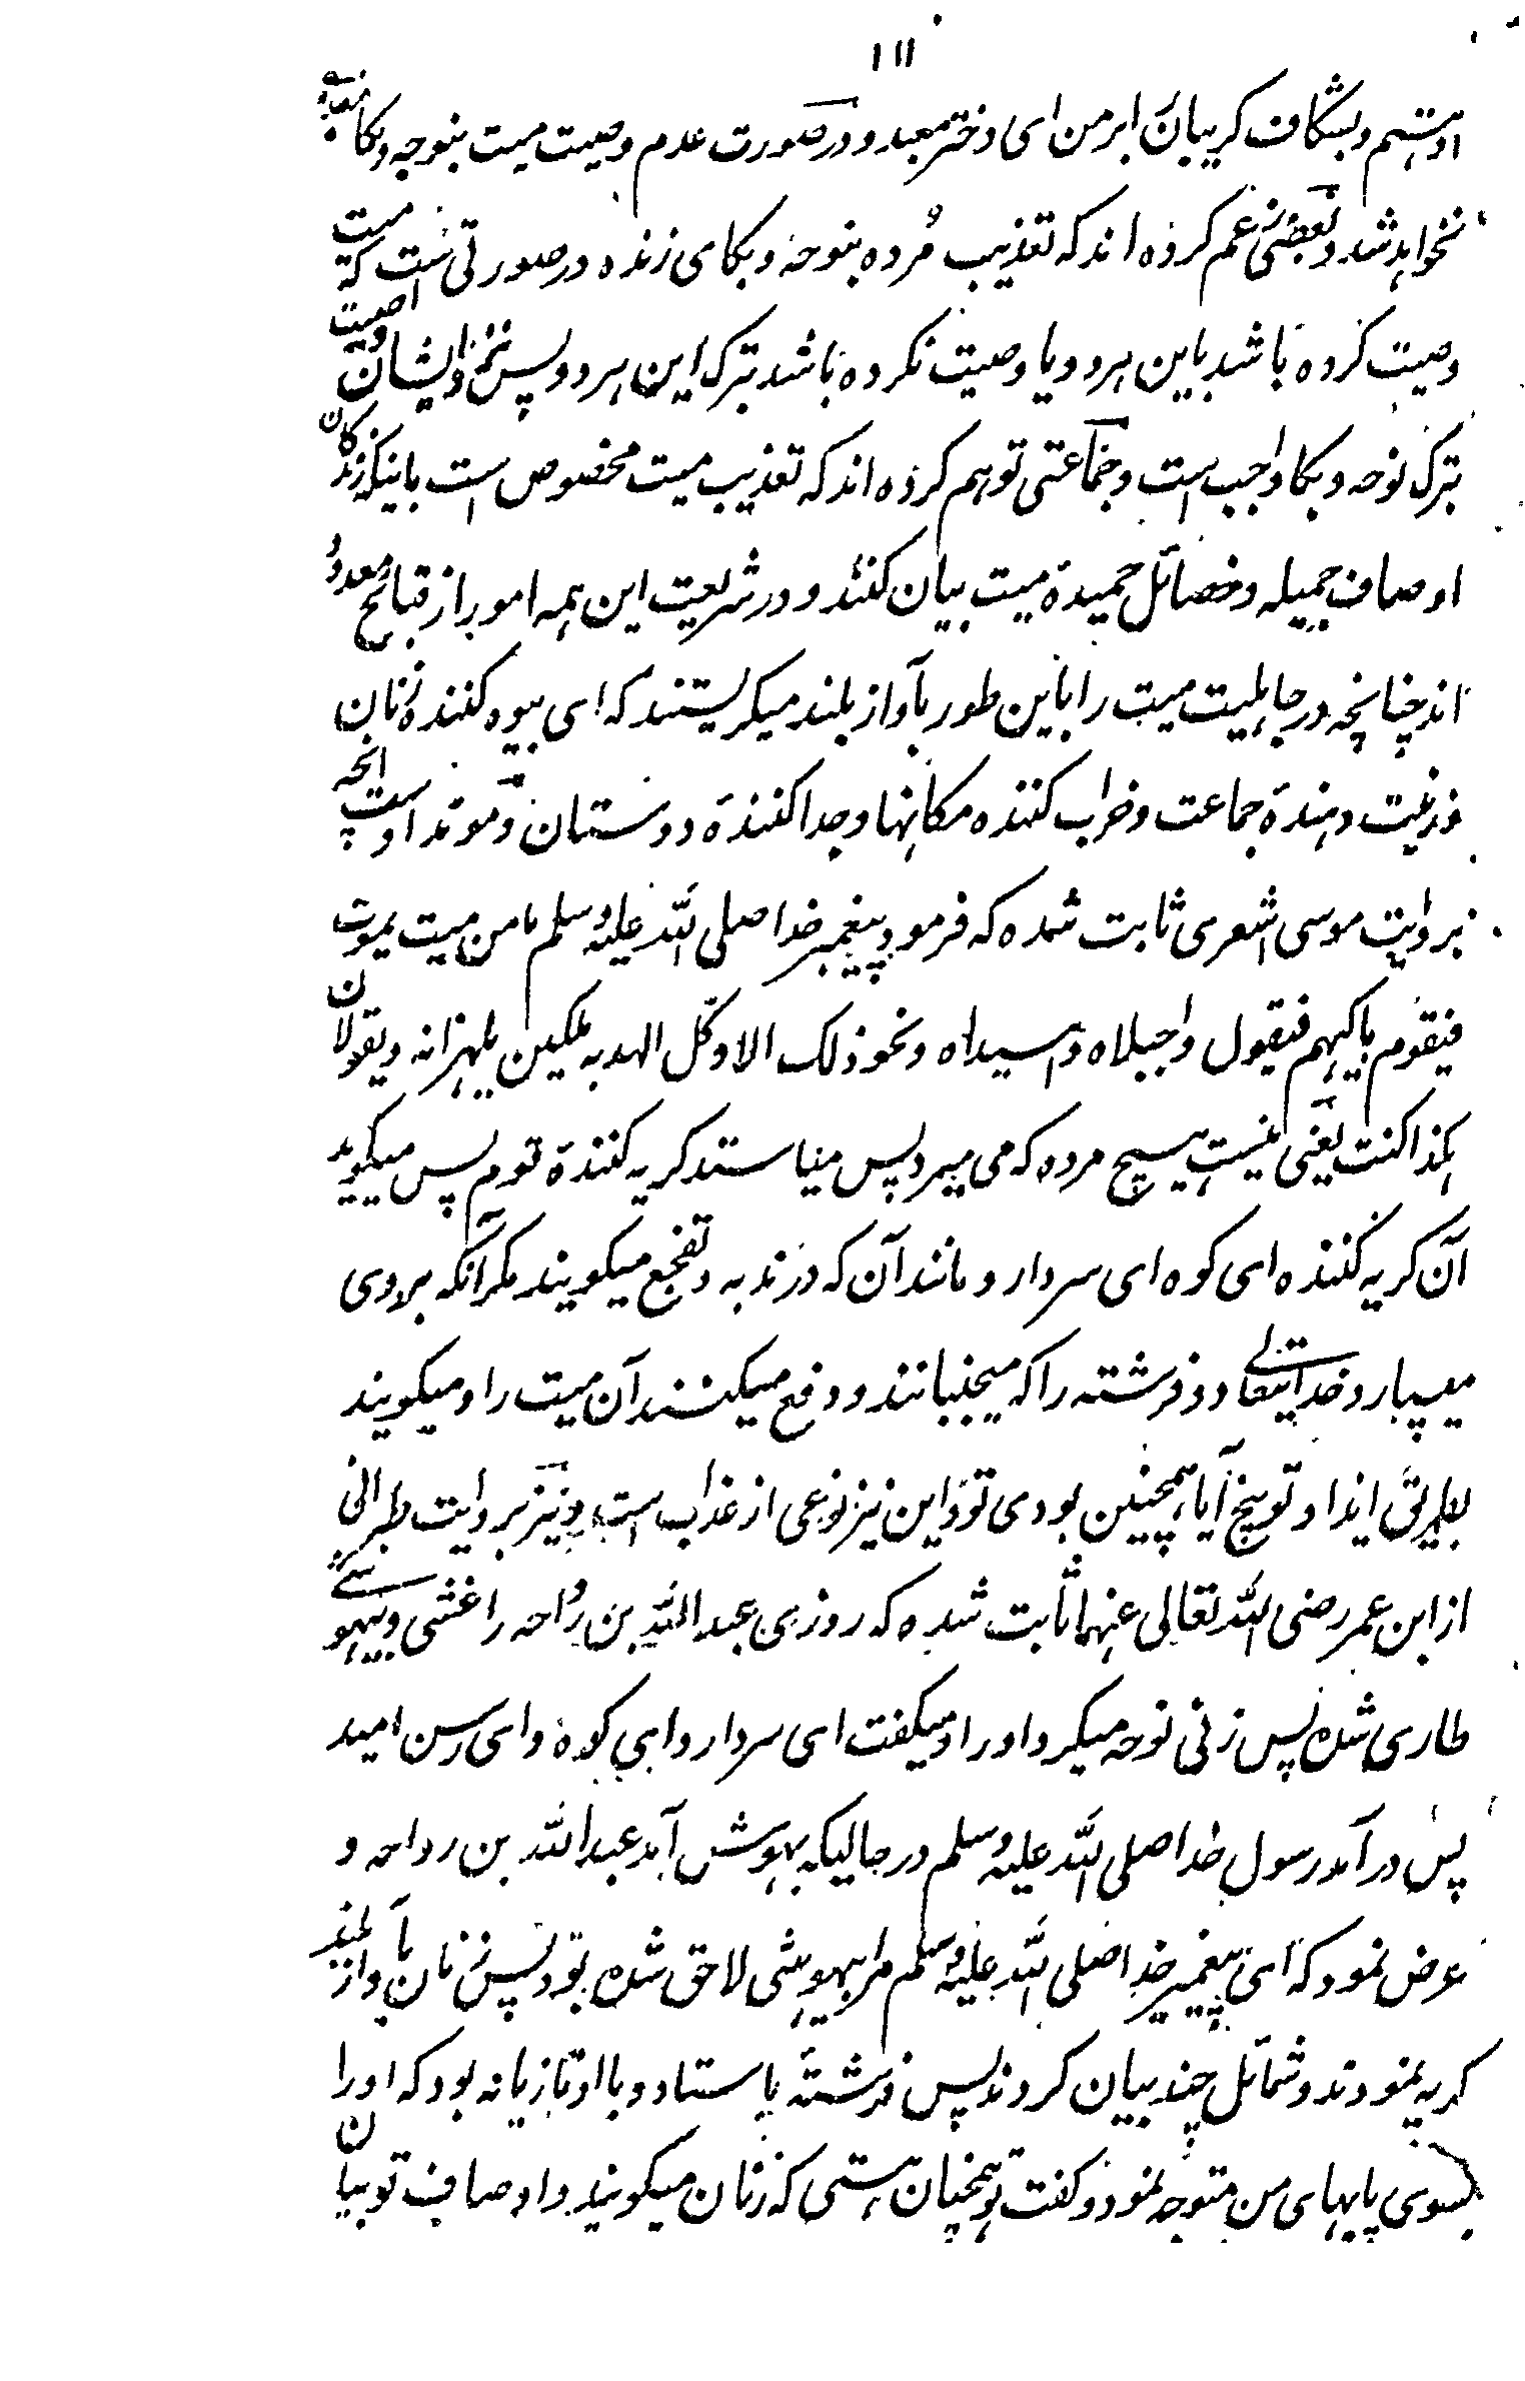 ۱۱۱
او ہستم و بشگاف گریبان بر من ای دختر معبد و در صورت عدم وصیت میت بنوحه و بکا
نخواہد شد و بعضی زعم کرده اند که تعذیب مُرده بنوحه و بکای زنده در صورتی ست که میت
وصیت کرده باشد باین ہر دو یا وصیت نکرده باشد بترک این ہر دو پس نزد ایشان وصیت
بترک نوحه و بکا واجب است و جماعتی توہم کرده اند که تعذیب میت مخصوص است باینکه زندگان
اوصاف جمیله و خصائل حمیدهٔ میت بیان کنند و در شریعت این ہمه امور از قبائح معدود
اند چنانچه در جاہلیت میت را باین طور بآواز بلند میگریستند که ای بیوه کنندهٔ زنان
و زینت دہندهٔ جماعت و خراب کننده مکانہا و جدا کنندهٔ دوستان و موید اوست انچه
بروایت موسی اشعری ثابت شده که فرمود پیغمبر خدا صلی الله علیه وسلم ما من میت یموت
فیقوم باکیہم فیقول واجبلاه واسیداه و نحو ذلک الا وکّل الله به ملکین یلہزانه و یقولان
ہکذا کنت یعنی نیست ہیچ مرده که می میرد پس میاستد گریه کنندهٔ قوم پس میگوید
آن گریه کننده ای کوه ای سردار و مانند آن که در ندبه و تفجع میگویند مگر آنکه بر وی
میسپارد خدایتعالے دو فرشته را که میجنبانند و دفع میکنند آن میت را و میگویند
بطریق ایذا و توبیخ آیا ہمچنین بودی تو و این نیز نوعی از عذاب است و نیز بروایت طبرانی
از ابن عمر رضی الله تعالی عنہما ثابت شده که روزی عبد الله بن رواحه را غشی و بیہوشے
طاری شد پس زنی نوحه میکرد او را و میگفت ای سردار و ای کوه و ای رسن امید
پس در آمد رسول خدا صلی الله علیه وسلم در حالیکه بہوش آمد عبد الله بن رواحه و
عرض نمود که ای پیغمبر خدا صلی الله علیه وسلم مرا بیہوشی لاحق شده بود پس زنان بآواز بلند
گریه نمودند و شمائل چند بیان کردند پس فرشتهٔ باستاد و با او تازیانه بود که او را
بسوی پایہای من متوجه نمود و گفت تو ہمچنان ہستی که زنان میگویند و اوصاف تو بیان